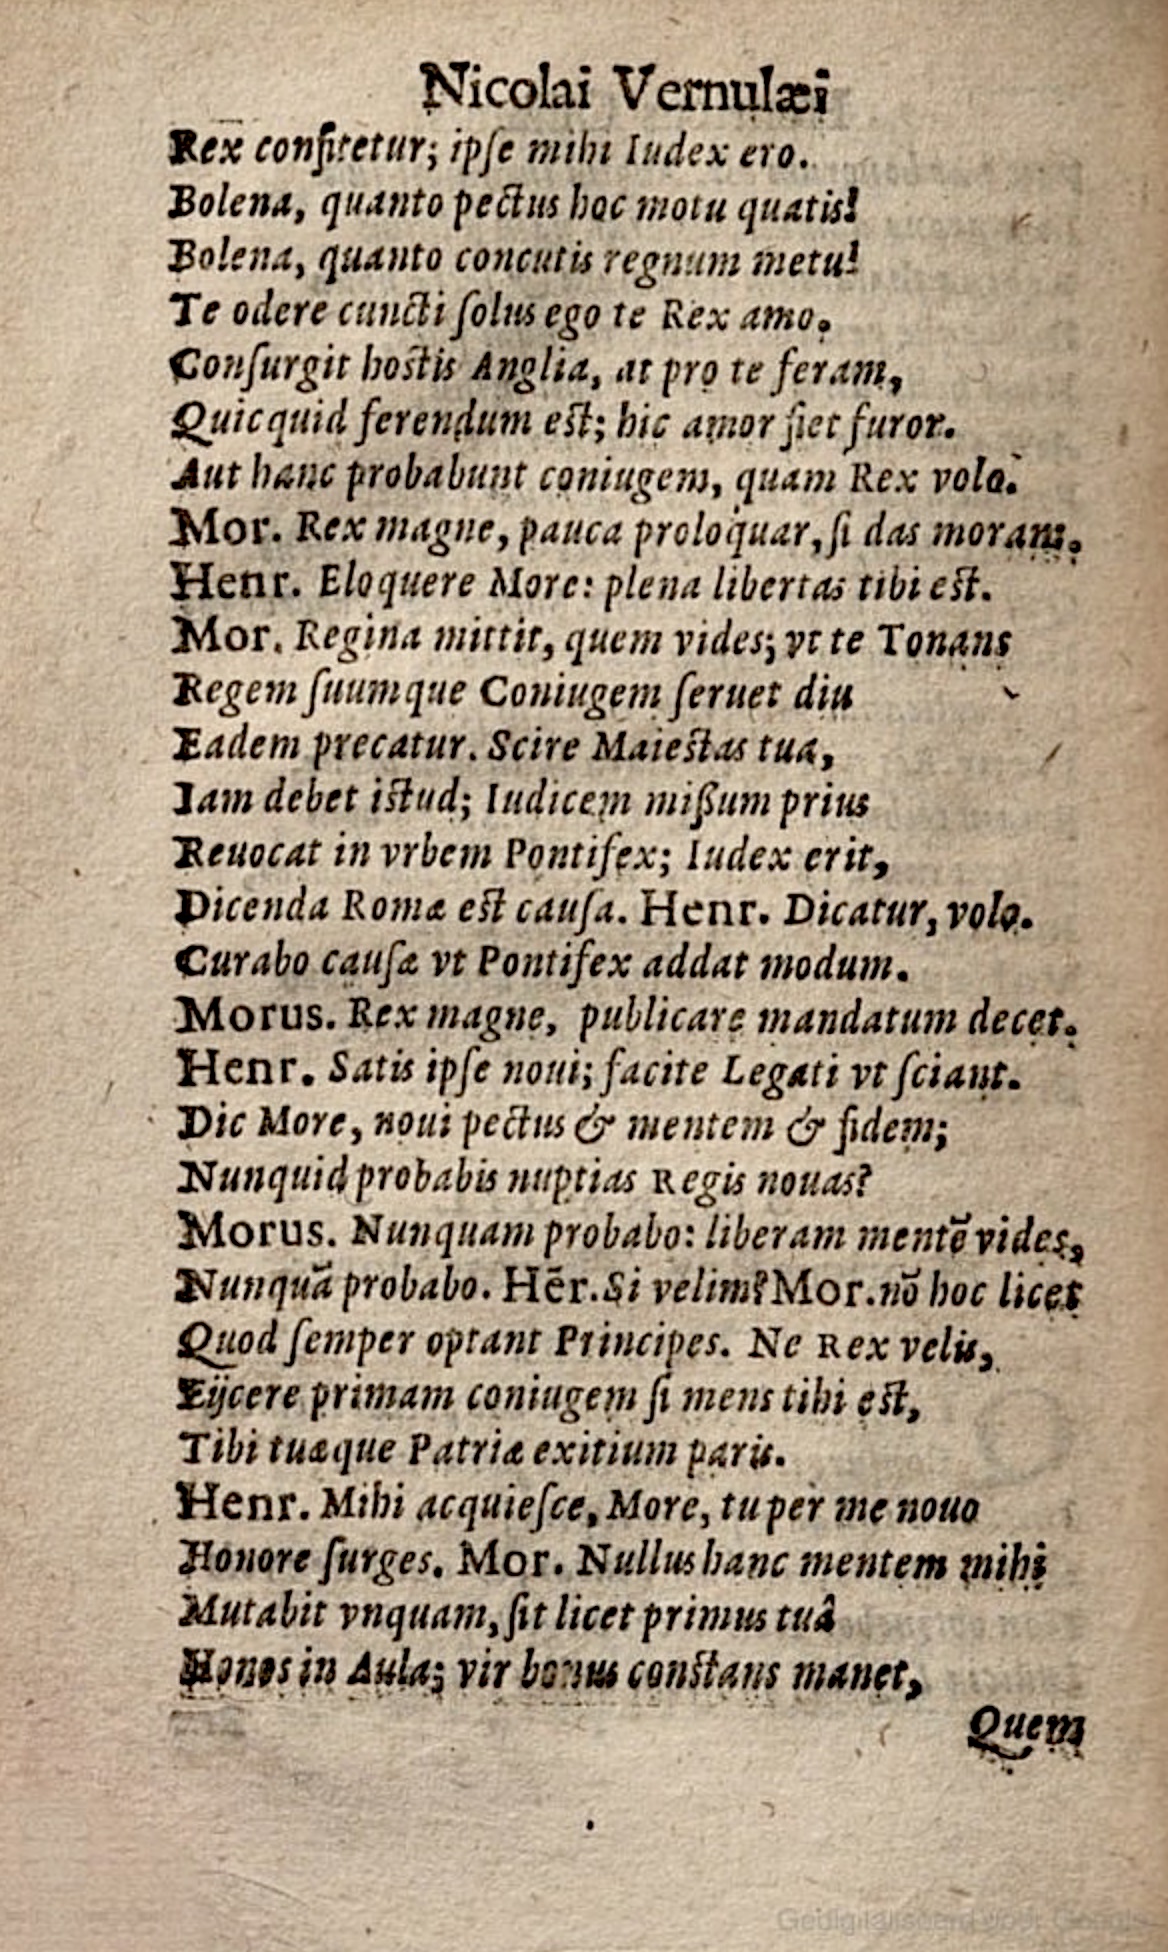 Nicolai Vernulæi
Rex confitetur; ipſe mihi Iudex ero.
Bolena, quanto pectus hoc motu quatis!
Bolena, quanto concutis regnum metu!
Te odere cuncti ſolus ego te Rex amo.
Conſurgit hostis Anglia, at pro te feram,
Quicquid ferendum est; hic amor fiet furor.
Aut hanc probabunt coniugem, quam Rex volo.
Mor. Rex magne, pauca proloquar, ſi das moram.
Henr. Eloquere More: plena libertas tibi est.
Mor. Regina mittit, quem vides; vt te Tonans
Regem ſuumque Coniugem ſeruet diu
Eadem precatur. Scire Maiestas tua,
Iam debet istud; Iudicem mißum prius
Reuocat in vrbem Pontifex; Iudex erit,
Dicenda Romæ est cauſa. Henr. Dicatur, volo.
Curabo cauſæ vt Pontifex addat modum.
Morus. Rex magne, publicare mandatum decet.
Henr. Satis ipſe noui; facite Legati vt ſciant.
Dic More, noui pectus & mentem & fidem;
Nunquid probabis nuptias Regis nouas?
Morus. Nunquam probabo: liberam mentē vides,
Nunquā probabo. Hēr. Si velim? Mor. nō hoc licet
Quod ſemper optant Principes. Ne Rex velis,
Eijcere primam coniugem ſi mens tibi est,
Tibi tuæque Patriæ exitium paris.
Henr. Mihi acquieſce, More, tu per me nouo
Honore ſurges. Mor. Nullus hanc mentem mihi
Mutabit vnquam, ſit licet primus tuâ
Honos in Aula; vir bonus constans manet,
Quem
Gedigitaliseerd door Google